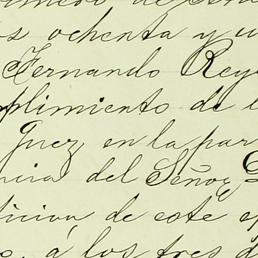 os ochenta y u
Fernando Rey
plimiento de l
Juez en la par
ncia del Señor
dicion de este e
á los tres d